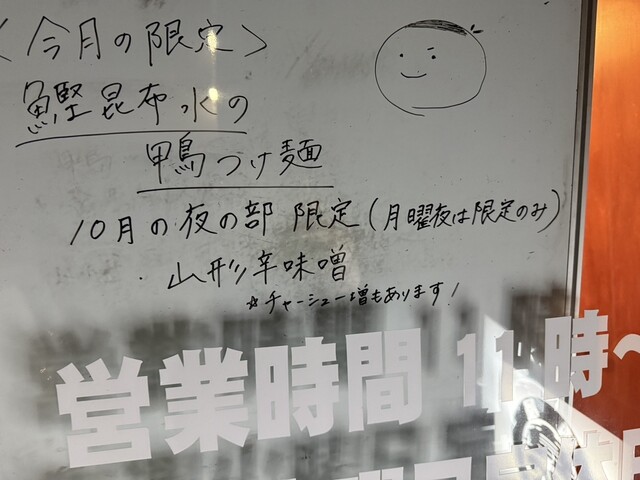 ＜今月の限定＞
鰹昆布水の
鴨つけ麺
10月の夜の部 限定(月曜夜は限定のみ)
・山形辛味噌
☆チャーシュー増もあります!
営業時間 11時〜